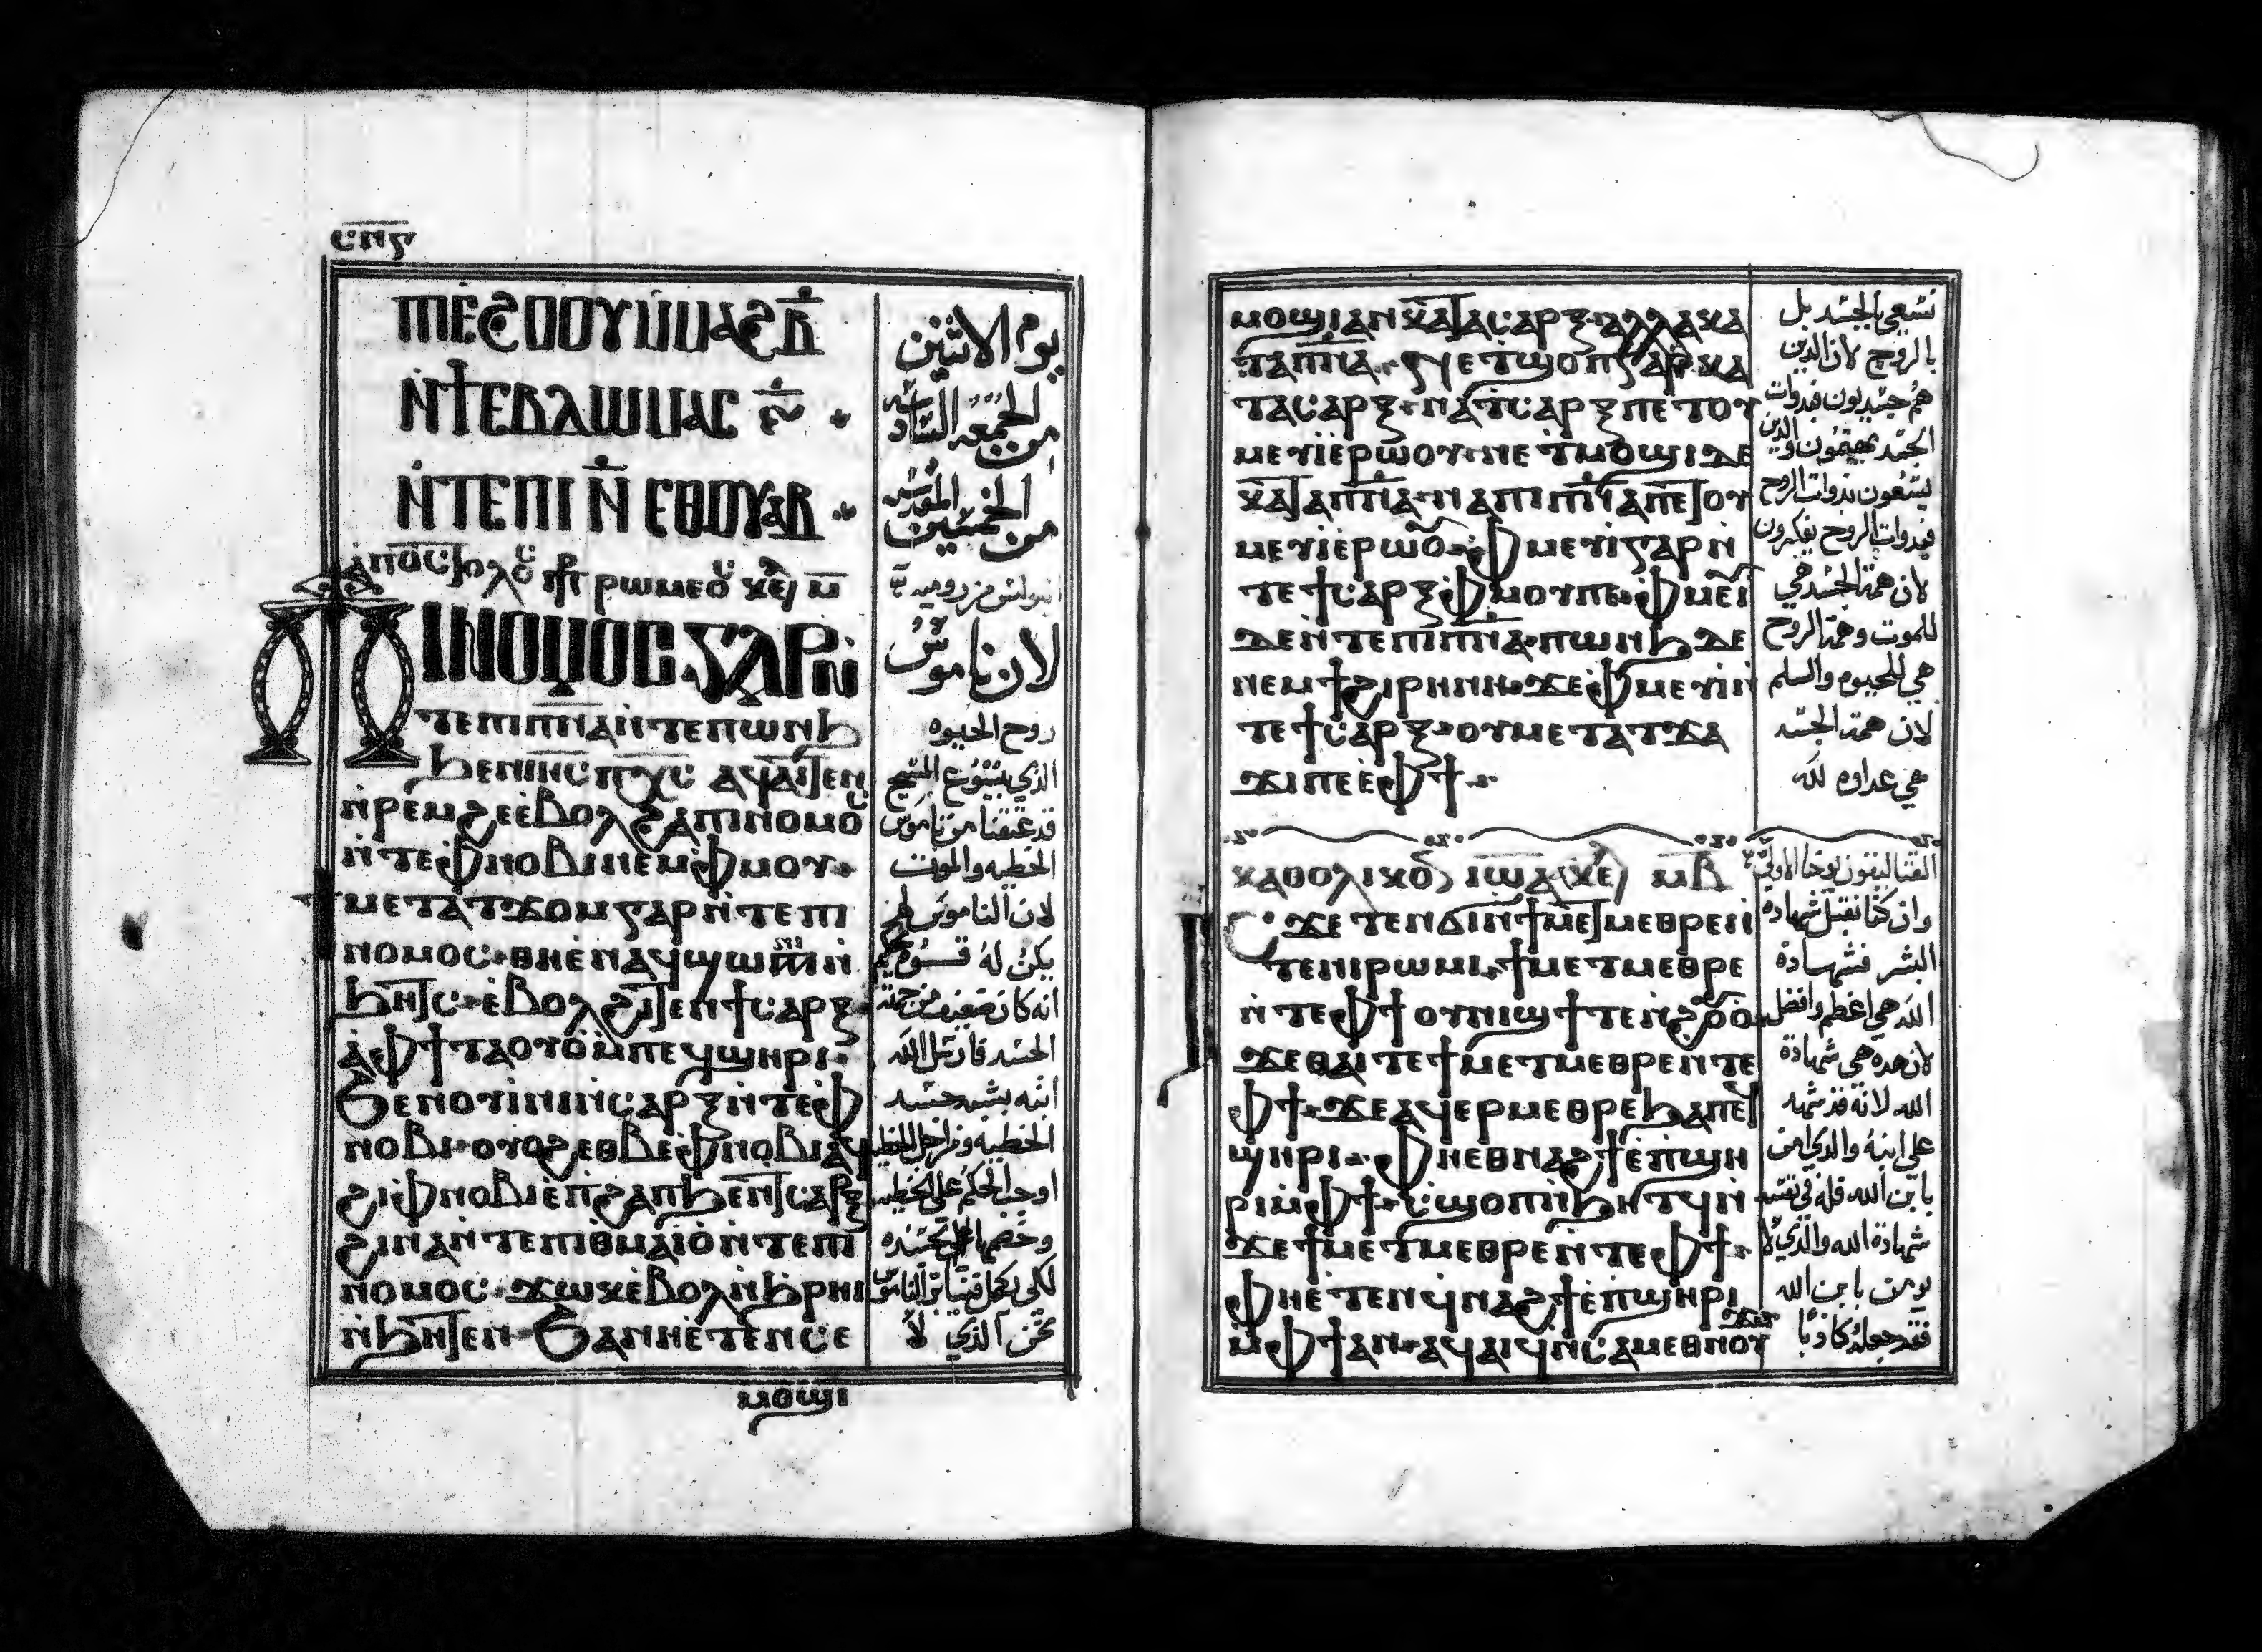 ⲥⲡⲋ
ⲡⲉϩⲟⲟⲩ ⲙⲙⲁϩ ⲃ̅
ⲛ̇ϯⲉⲃⲇⲱⲙⲁⲥ
ⲛ̇ⲧⲉⲡⲓ ⲛ̅ ⲉⲑⲟⲩⲁⲃ
يوم الاثنين
من الجمعه السادسه
من الخمسين المقدسه
ⲡⲓⲛⲟⲙⲟⲥ ⲅⲁⲣ ⲛ̇
ⲧⲉⲡⲓⲡ̅ⲛ̅ⲁ̅ ⲛ̇ⲧⲉⲡⲱⲛϧ
ϧⲉⲛ ⲓⲏⲥ ⲡⲭⲥ ⲁϥⲁⲓⲧⲉⲛ
ⲛ̇ⲣⲉⲙϩⲉ ⲉ̇ⲃⲟⲗϩⲁ ⲡⲓⲛⲟⲙⲟⲥ
ⲛ̇ⲧⲉ ⲫⲛⲟⲃⲓ ⲛⲉⲙ ⲫⲙⲟⲩ
ⲙⲉⲧⲁⲧϫⲟⲙ ⲅⲁⲣ ⲛ̇ⲧⲉⲡⲓ
ⲛⲟⲙⲟⲥ ⲑⲏ ⲉ̇ⲛⲁϥϣⲱⲛⲓ ⲛ̇
ϧⲏⲧⲥ ⲉ̇ⲃⲟⲗϩⲓⲧⲉⲛ ϯⲥⲁⲣⲝ
ⲁ̇ⲫϯ ⲧⲁⲟⲩⲟ̇ ⲙ̇ⲡⲉϥϣⲏⲣⲓ
ϧⲉⲛ ⲟⲩⲓ̇ⲛⲓ ⲛ̇ⲥⲁⲣⲝ ⲛ̇ⲧⲉ ⲫ
ⲛⲟⲃⲓ ⲟⲩⲟϩ ⲉⲑⲃⲉ ⲫⲛⲟⲃⲓ ⲁϥ
ϩⲓ ⲫⲛⲟⲃⲓ ⲉ̇ⲡϩⲁⲡ ϧⲉⲛ ⲧⲥⲁⲣⲝ
ϩⲓⲛⲁ ⲛ̇ⲧⲉ ⲡⲓⲑⲙⲁⲓⲟ̇ ⲛ̇ⲧⲉⲡⲓ
ⲛⲟⲙⲟⲥ ϫⲱⲕ ⲉ̇ⲃⲟⲗ ⲛ̇ϧⲣⲏⲓ
ⲛ̇ϧⲏⲧⲉⲛ ϧⲁ ⲛⲏ ⲉ̇ⲧⲉⲛⲥⲉ
ⲙⲟϣⲓ
لان ناموس
روح الحيوه
الذي بيسوع المسيح
قد عتقنا من ناموس
الخطيه والموت
لان الناموس لم
يكن له قسوم
انه كان ضعيف من جهة
الجسد فارسل الله
ابنه بشبه جسد
الخطيه ومن اجل الخطيه
اوجب الحكم على الخطيه
لكي يكمل فينا بر الناموس
نحن الذي لا
ⲙⲟϣⲓ ⲁⲛ ⲕⲁⲧⲁ ⲥⲁⲣⲝ ⲁⲗⲗⲁ ⲕⲁ
ⲧⲁ ⲡ̅ⲛ̅ⲁ̅ ⲛⲏ ⲉⲧϣⲟⲡ ⲅⲁⲣ ⲕⲁ
ⲧⲁ ⲥⲁⲣⲝ ⲛⲁ ϯⲥⲁⲣⲝ ⲡⲉⲧⲟⲩ
ⲙⲉⲩⲓ̇ ⲉ̇ⲣⲱⲟⲩ ⲛⲏ ⲉⲧⲙⲟϣⲓ ⲇⲉ
ⲕⲁⲧⲁ ⲡ̅ⲛ̅ⲁ̅ ⲛⲁ ⲡⲓⲡ̅ⲛ̅ⲁ̅ ⲡⲉⲧⲟⲩ
ⲙⲉⲩⲓ̇ ⲉ̇ⲣⲱⲟⲩ ⲫⲙⲉⲩⲓ̇ ⲅⲁⲣ ⲛ̇
ⲧⲉ ϯⲥⲁⲣⲝ ⲫⲙⲟⲩ ⲡⲉ ⲫⲙⲉⲩⲓ̇
ⲇⲉ ⲛ̇ⲧⲉ ⲡⲓⲡ̅ⲛ̅ⲁ̅ ⲡⲱⲛϧ ⲇⲉ
ⲛⲉⲙ ϯϩⲓⲣⲏⲛⲏ ϫⲉ ⲫⲙⲉⲩⲓ̇ ⲛ̇
ⲧⲉ ϯⲥⲁⲣⲝ ⲟⲩⲙⲉⲧϫⲁ
ϫⲓ ⲡⲉ ⲉ̇ⲫϯ
نسعى بالجسد بل
بالروح لان الذين
هم جسديون فبذوات
الجسد يهتمون والذين
يسعون بذوات الروح
فبذوات الروح يفكرون
لان همة الجسد هي
للموت وهمة الروح
هي للحيوه والسلم
لان همة الجسد
هي عداوه لله
ⲕⲁⲑⲟⲗⲓⲕⲟⲛ ⲓⲱⲁ ⲕⲉ ⲙⲃ
ⲓⲥϫⲉ ⲧⲉⲛϭⲓ ⲛ̇ϯⲙⲉⲧⲙⲉⲑⲣⲉ ⲛ̇
ⲧⲉ ⲛⲓⲣⲱⲙⲓ ϯⲙⲉⲧⲙⲉⲑⲣⲉ
ⲛ̇ⲧⲉ ⲫϯ ⲟⲩⲛⲓϣϯ ⲧⲉ ⲛ̇ϩⲟⲩⲟ̇
ϫⲉ ⲑⲁⲓ ⲧⲉ ϯⲙⲉⲧⲙⲉⲑⲣⲉ ⲛ̇ⲧⲉ
ⲫϯ ϫⲉ ⲁϥⲉⲣⲙⲉⲑⲣⲉ ϧⲁ ⲡⲉϥ
ϣⲏⲣⲓ ⲫⲏ ⲉⲑⲛⲁϩϯ ⲉ̇ⲡϣⲏ
ⲣⲓ ⲙ̇ⲫϯ ⲥϣⲟⲡ ⲛ̇ϧⲏⲧϥ ⲛ̇
ϫⲉ ϯⲙⲉⲧⲙⲉⲑⲣⲉ ⲛ̇ⲧⲉ ⲫϯ
ⲫⲏ ⲉⲧⲉⲛϥⲛⲁϩϯ ⲉ̇ⲡϣⲏⲣⲓ
ⲙ̇ⲫϯ ⲁⲛ ⲁϥⲁⲓϥ ⲛ̇ⲥⲁⲙⲉⲑⲛⲟⲩϫ
وان كنا نقبل شهادة
البشر فشهادة
الله هي اعظم وافضل
لان هذه هي شهادة
الله لانه قد شهد
على ابنه والذي امن
بابن الله فله في نفسه
شهادة الله والذي لا
يومن بابن الله
فقد جعله كاذبا